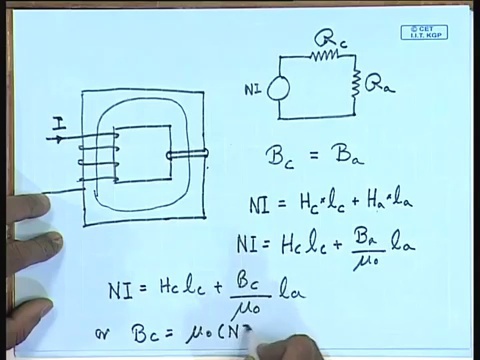 © CET
I.I.T. KGP
R_c
NI
R_a
I
B_c = B_a
NI = H_c * l_c + H_a * l_a
NI = H_c l_c + B_a/μ_0 l_a
NI = H_c l_c + B_c/μ_0 l_a
or B_c = μ_0 (N